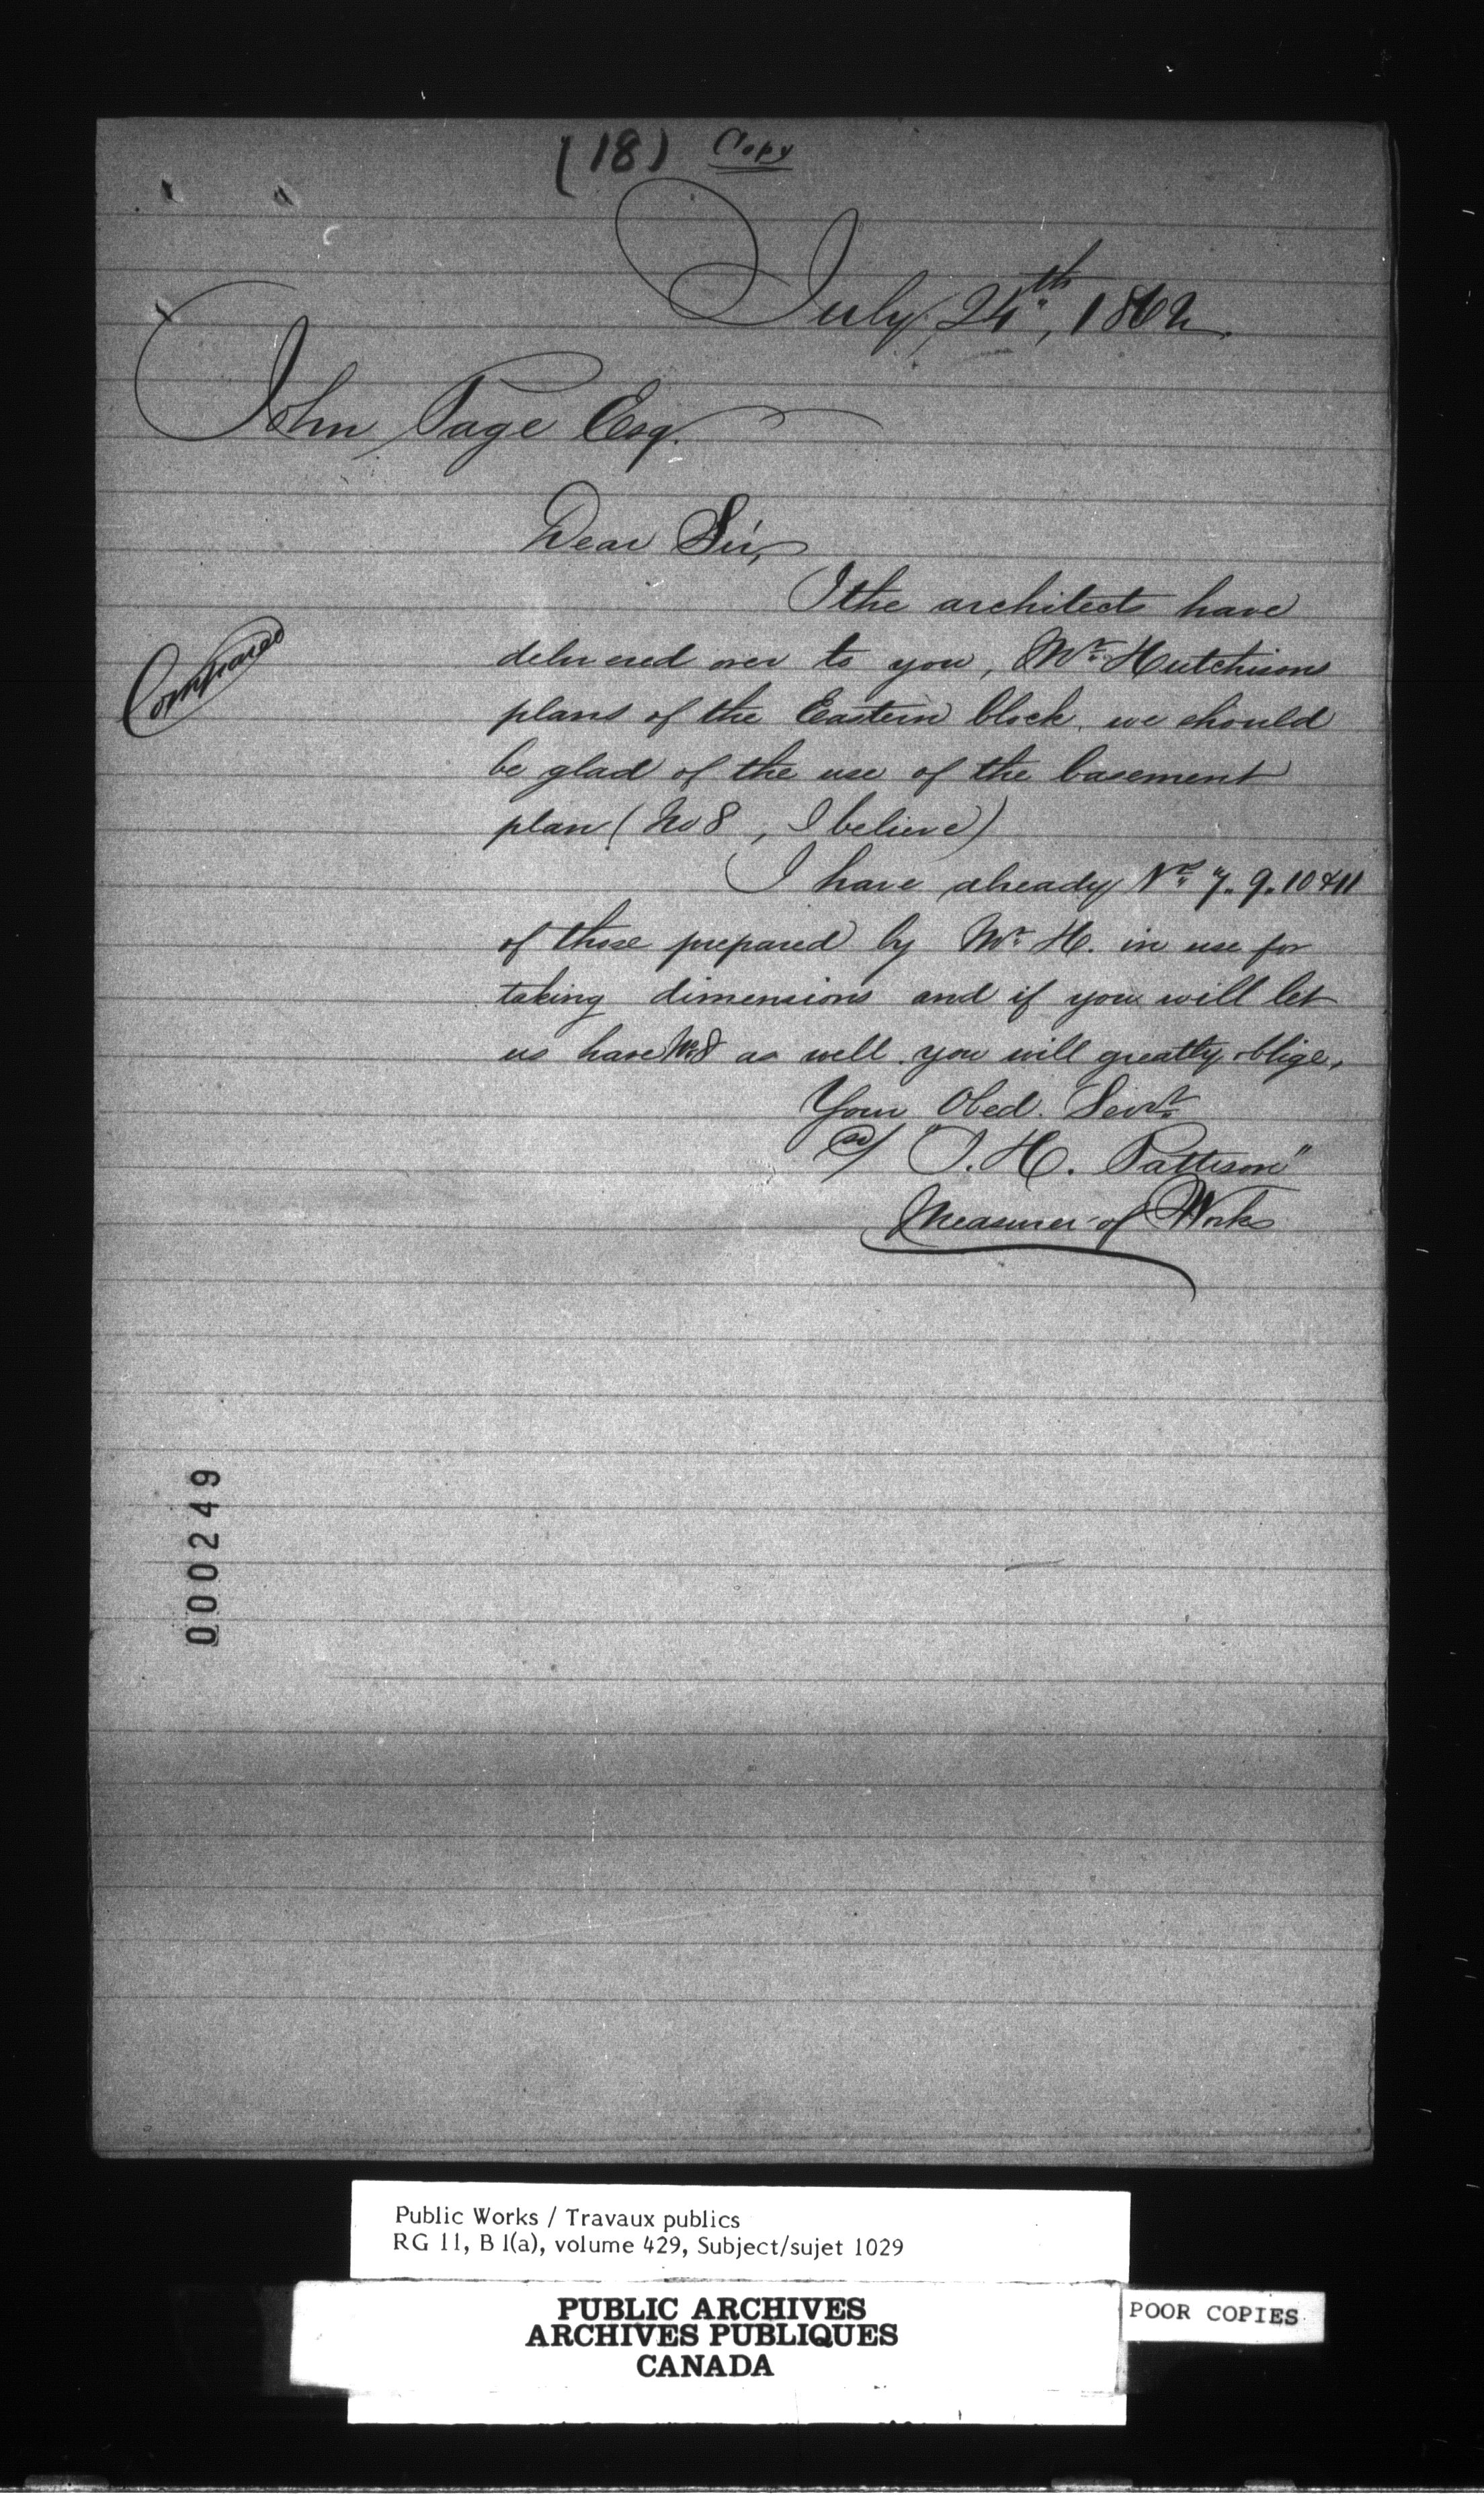 (18) Copy
July, 24th, 1862.
John Page Esq.
Dear Sir,
If the architects have
Compared
delivered over to you, Mr. Hutchisons
plans of the Eastern block, we should
be glad of the use of the basement
plan (No 8, I believe)
I have already Nos. 7. 9. 10 & 11
of those prepared by Mr. H. in use for
taking dimensions and if you will let
us have No. 8 as well you will greatly oblige,
Your Obed. Servt.
"T. H. Pattison"
Measurer of Works
000249
Public Works / Travaux publics
RG 11, B 1(a), volume 429, Subject/sujet 1029
PUBLIC ARCHIVES
ARCHIVES PUBLIQUES
CANADA
POOR COPIES